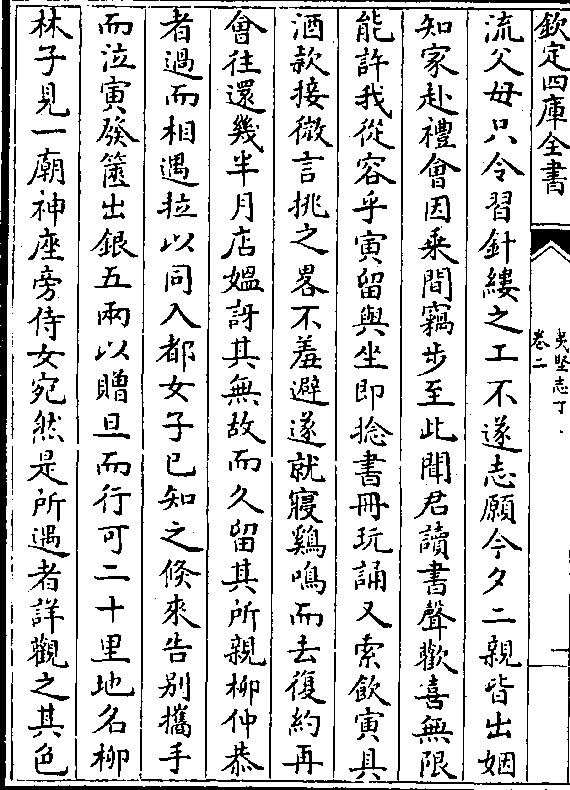 欽定四庫全書
夷堅志丁
卷二
一
流父母只令習針縷之工不遂志願今夕二親皆出姻
知家赴禮會因乘間竊步至此聞君讀書聲歡喜無限
能許我從容乎寅留與坐即捻書冊玩誦又索飲寅具
酒款接微言挑之畧不羞避遂就寢鷄鳴而去復約再
會往還幾半月店媼訝其無故而久留其所親柳仲恭
者過而相遇拉以同入都女子已知之倐來告别攜手
而泣寅發篋出銀五兩以贈旦而行可二十里地名柳
林子見一廟神座旁侍女宛然是所遇者詳觀之其色